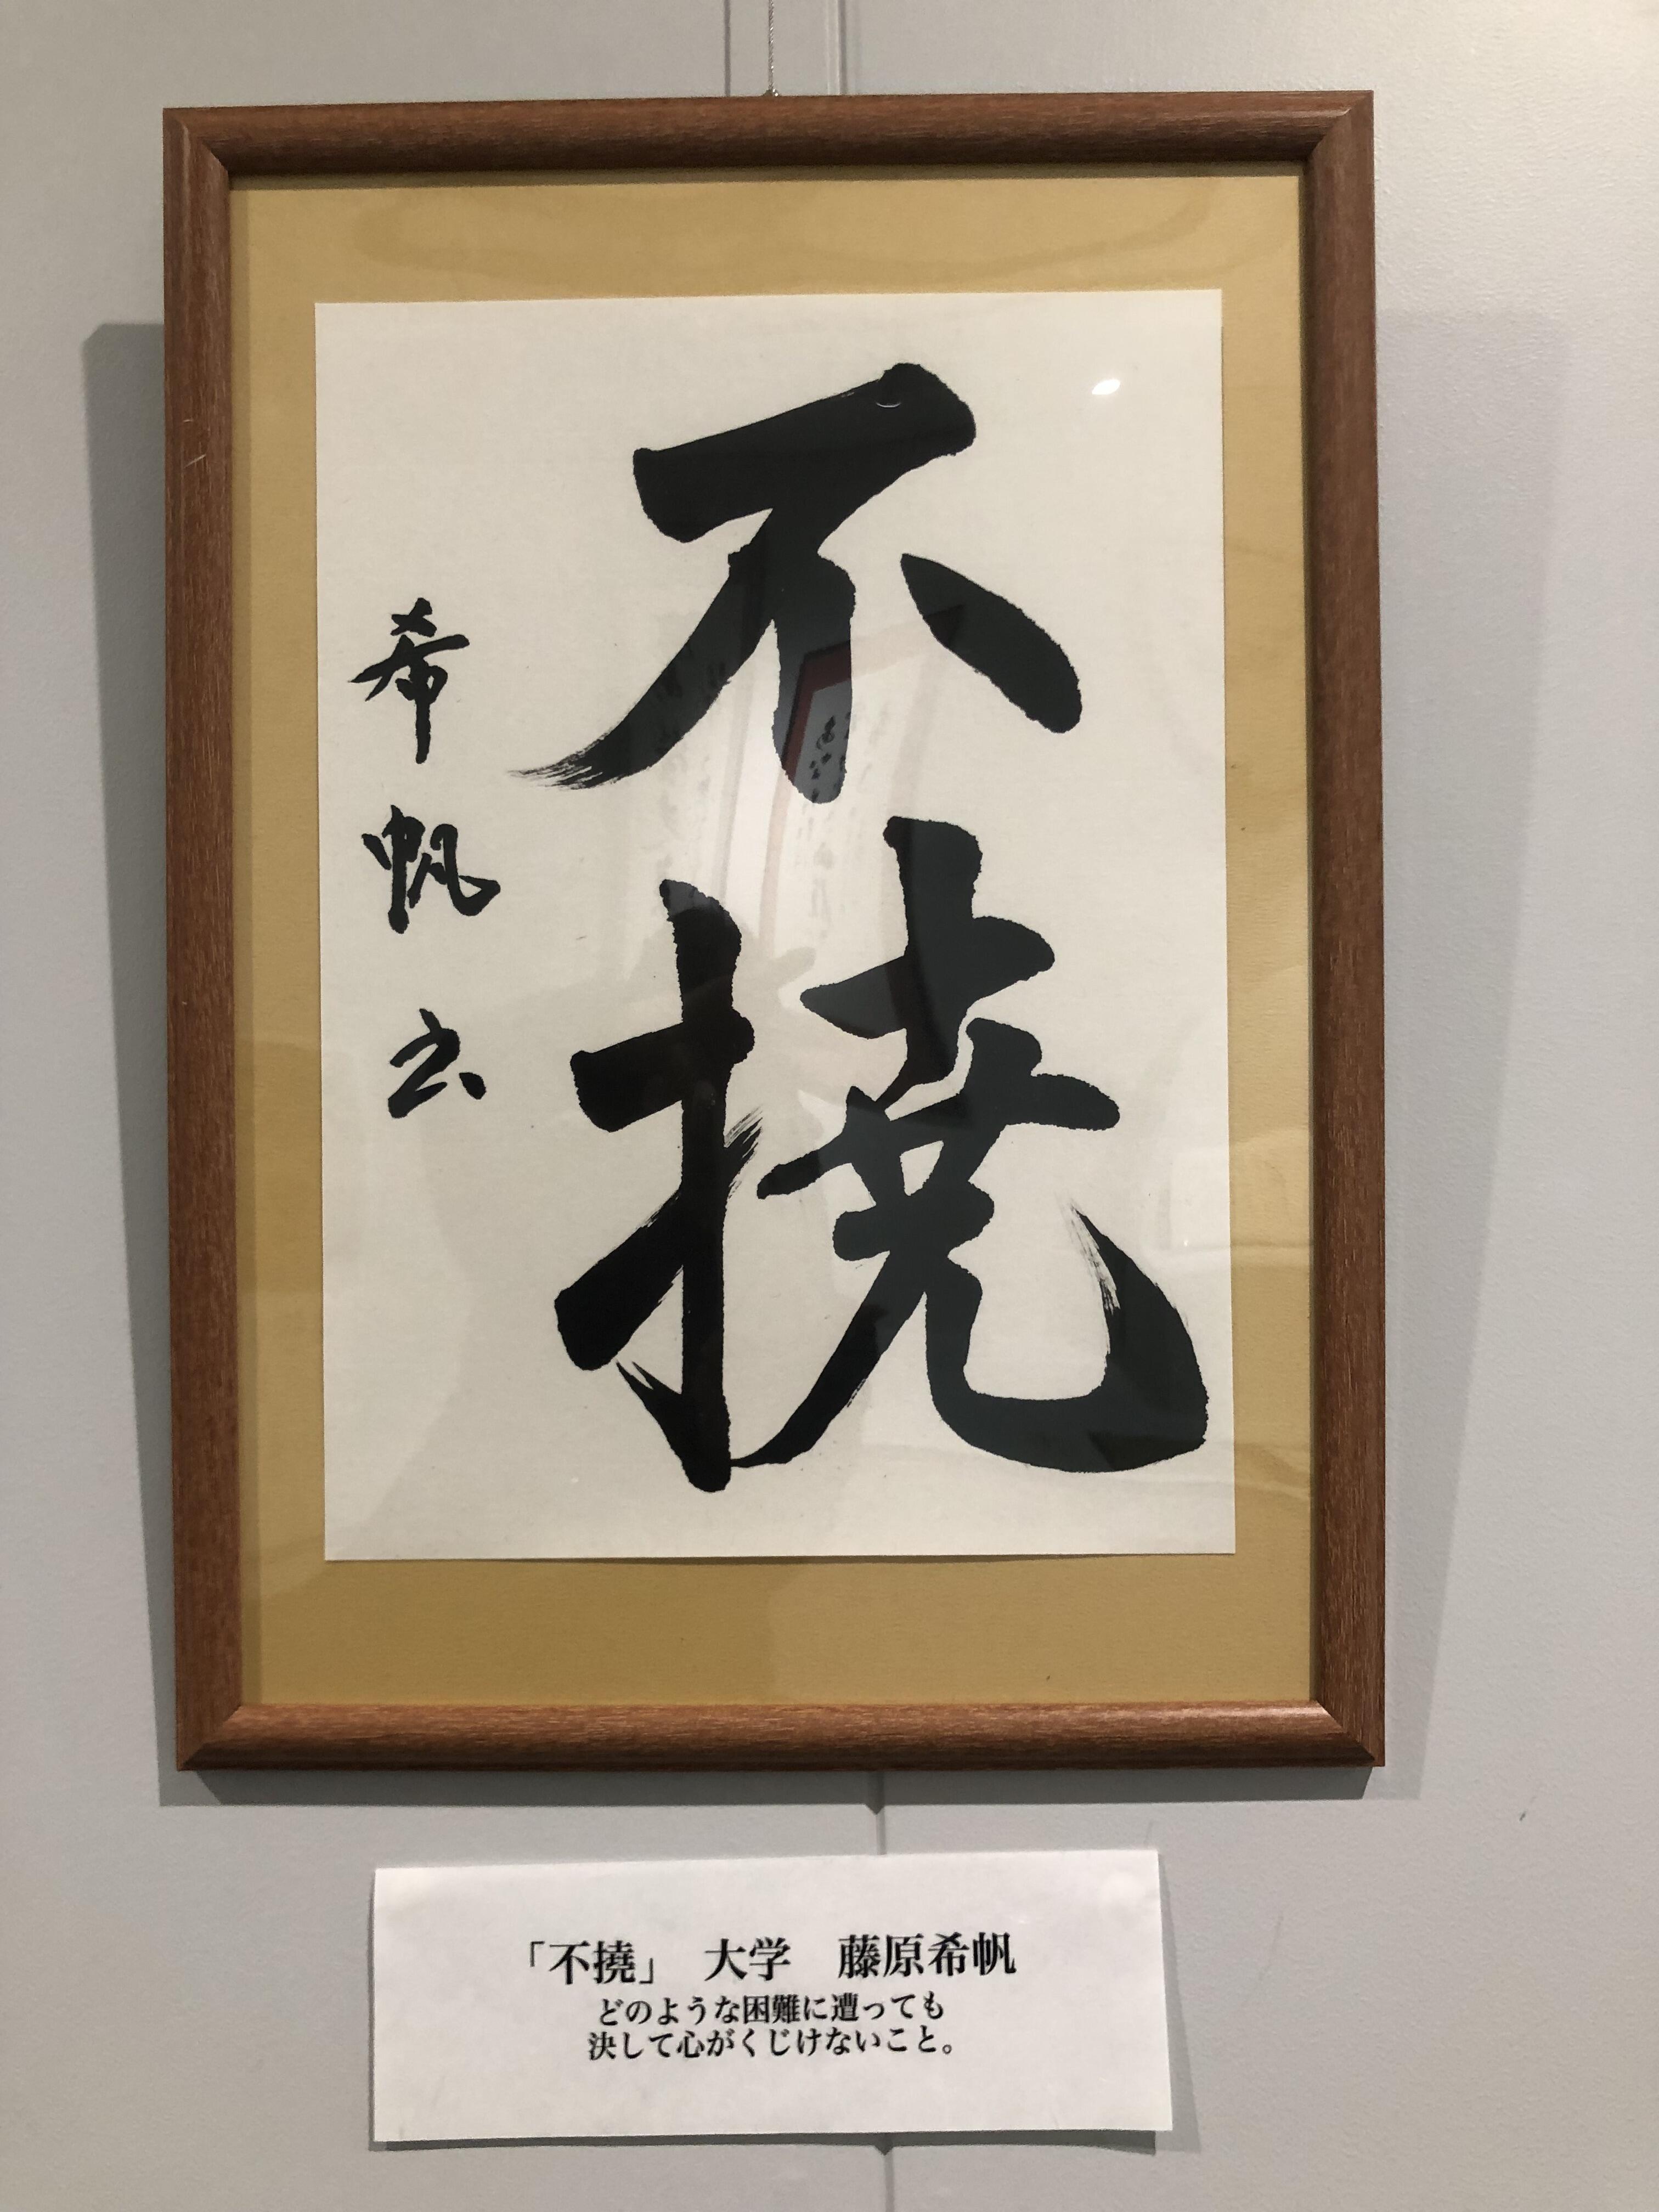 不撓
希帆書
「不撓」　大学　藤原希帆
どのような困難に遭っても
決して心がくじけないこと。